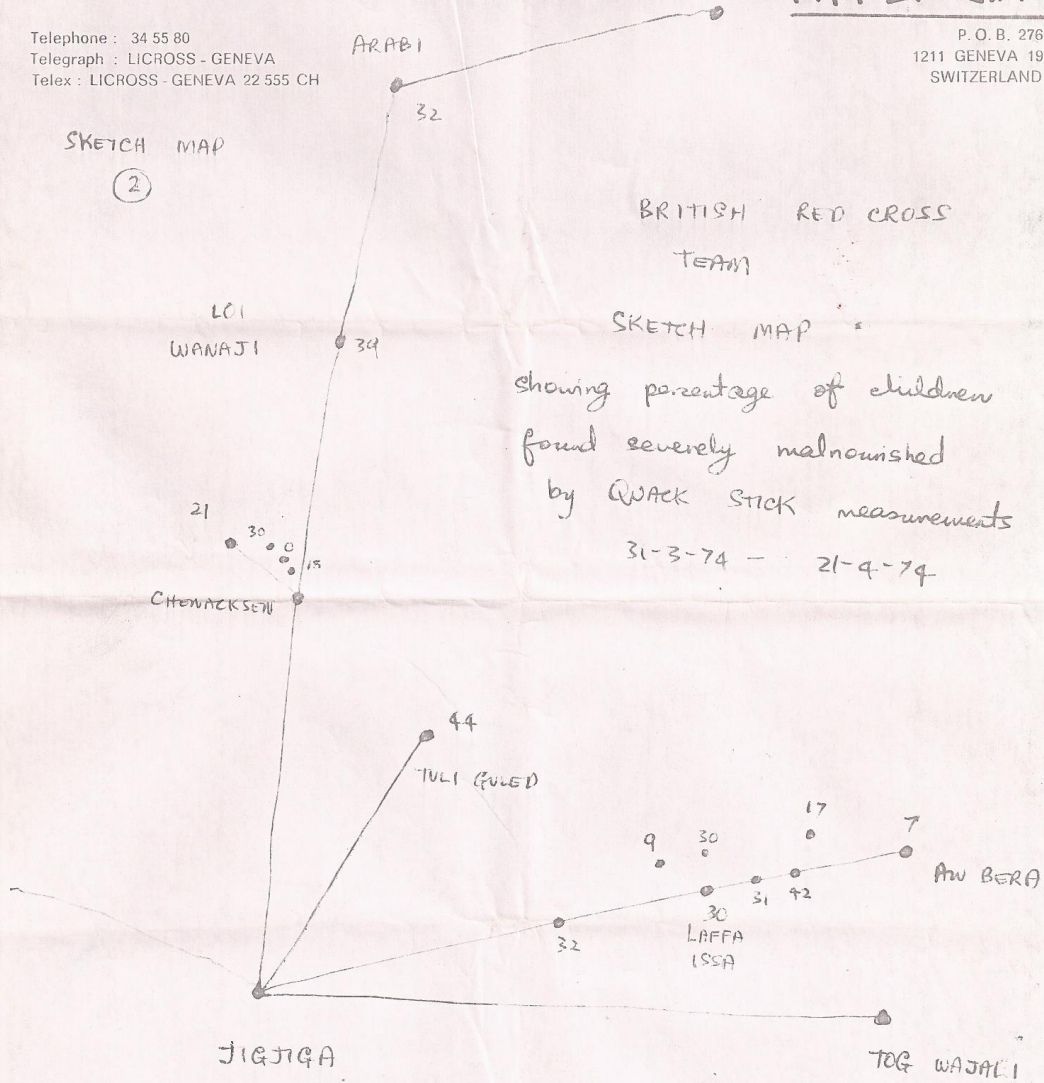 Telephone : 34 55 80
Telegraph : LICROSS - GENEVA
Telex : LICROSS - GENEVA 22 555 CH
P. O. B. 276
1211 GENEVA 19
SWITZERLAND
ARABI
32
SKETCH MAP
2
BRITISH RED CROSS
TEAM
SKETCH MAP
showing percentage of children
found severely malnourished
by QUACK STICK measurements
31-3-74 - 21-4-74
LOI
WANAJI
34
21
30
0
15
CHENACKSEN
44
TULI GULED
9
30
17
7
AW BERA
32
30
31
42
LAFFA
ISSA
JIGJIGA
TOG WAJALI